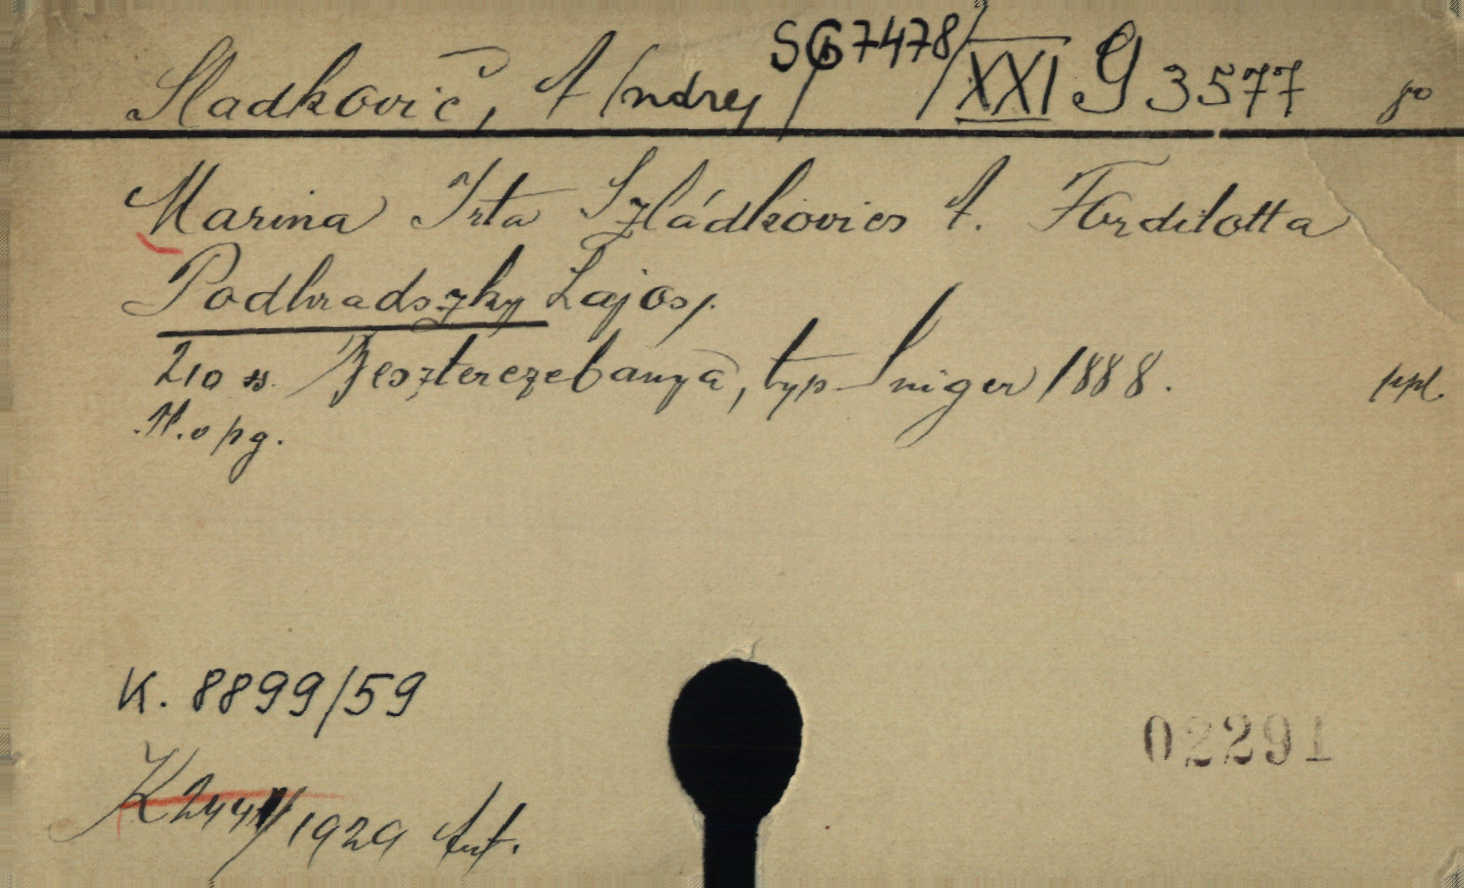 Sladkovič, A/Andrej SG 7478/XXI G 3577
Marina Irta Szládkovics A. Fordította
Podhradszky Lajos.
210 s. Beszterczebanya, typ Sniger 1888. ppl.
K. 8899/59
02291
1929